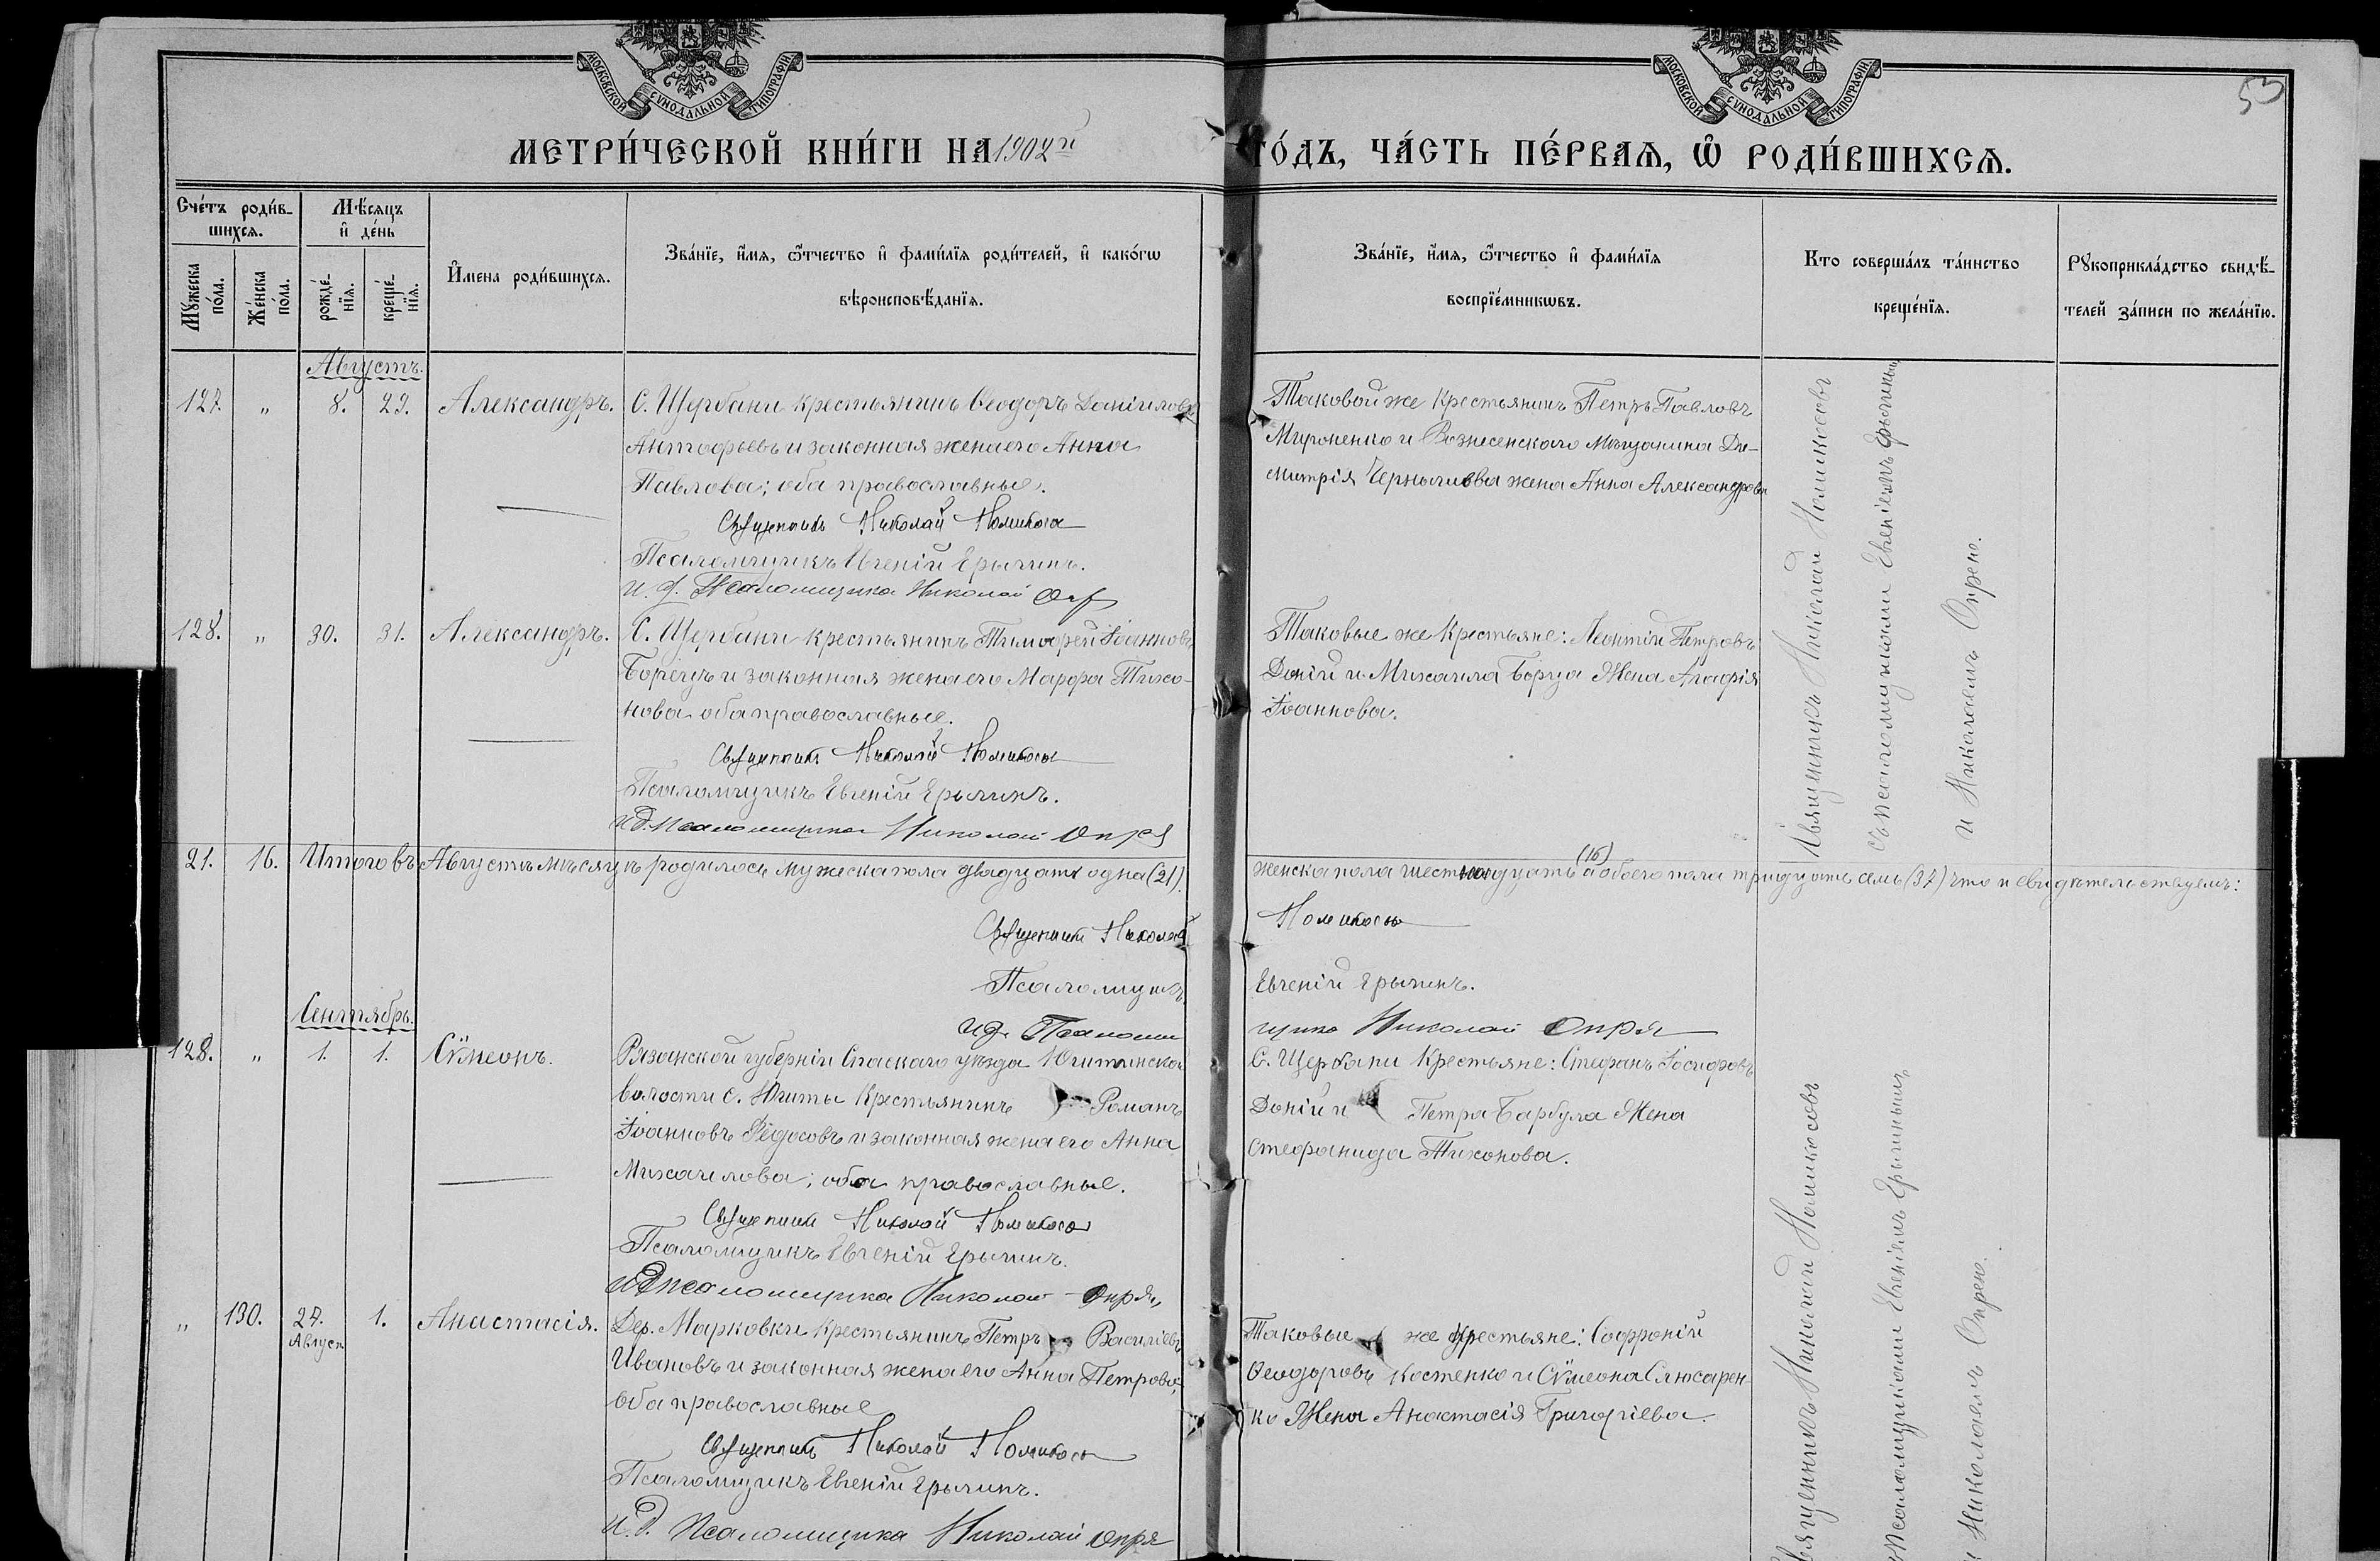 МОСКОВСКОЙ СУНОДАЛЬНОЙ ТИПОГРАФІИ
МОСКОВСКОЙ СУНОДАЛЬНОЙ ТИПОГРАФІИ
53
МЕТРИ́ЧЕСКОЙ КНИ́ГИ НА 1902й
ГО́ДЪ, ЧА́СТЬ ПЕ́РВАЯ, Ѡ РОДИ́ВШИХСѦ.
Сче́тъ роди́в-
шихсѧ.
Мꙋ́жеска по́ла.
Же́нска по́ла.
Мѣ́сяцъ
и҆ де́нь
рожде́-нїѧ.
креще́-нїѧ.
И҆мена роди́вшихсѧ.
Зва́нїе, и҆́мѧ, ѻ҆́тчество и҆ фами́лїѧ роди́телей, и҆ како́гѡ
вѣроисповѣ́данїѧ.
Зва́нїе, и҆́мѧ, ѻ҆́тчество и҆ фами́лїѧ
воспрїе́мникѡвъ.
Кто соверша́лъ та́инство
креще́нїѧ.
Рꙋкоприкла́дство свидѣ́-
телей за́писи по жела́нїю.
Августъ.
127. " 8. 29. Александръ.
С. Щербани крестьянинъ Ѳеодоръ Данiиловъ
Антофьевъ и законная жена его Анна
Павлова; оба православные.
Священникъ Николай Номикосъ
Псаломщикъ Евгеній Ерычинъ.
И. д. Псаломщика Николай Опря
Таковой же крестьянинъ Петръ Павловъ
Мироненко и Вознесенскаго мѣщанина Ди-
митрія жена Анна Александрова
Священникъ Николай Номикосовъ
съ псаломщиками Евгеніемъ Ерычинымъ
и Николаемъ Опрею.
128. " 30. 31. Александръ.
С. Щербани крестьянинъ Тимофей Іоанновъ
Борецъ и законная жена его Марфа Тихо-
нова оба православные.
Священникъ Николай Номикосъ
Псаломщикъ Евгеній Ерычинъ.
И д. Псаломщика Николай Опря
Таковые же крестьяне: Леонтій Петровъ
Доній и Михаила Борца жена Агафія
Іоаннова.
21. 16. Итого въ Августѣ мѣсяцѣ родилось мужеска пола двадцать одна (21).
женска пола шестнадцать (16) а обоего пола тридцать семь (37) что и свидѣтельствуемъ:
Священникъ Николай Номикосъ
Псаломщикъ Евгеній Ерычинъ.
И д. Псаломщика Николай Опря
Сентябрь.
128. " 1. 1. Сѵмеонъ.
Рязанской губерніи Спаскаго уѣзда Ижитинской
волости с. Ижиты крестьянинъ Романъ
Іоанновъ Ѳедосовъ и законная жена его Анна
Михаилова; оба православные.
Священникъ Николай Номикосъ
Псаломщикъ Евгеній Ерычинъ.
И д псаломщика Николай Опря
С. Щербани крестьяне: Стефанъ Іосифовъ
Доній и Петра Барбула жена
Стефанида Тихонова.
Священникъ Николай Номикосовъ
съ псаломщиками Евгеніемъ Ерычинымъ
и Николаемъ Опрею.
" 130. 27. Август 1. Анастасія.
Дер. Марковки крестьянинъ Петръ Василіевъ
Ивановъ и законная жена его Анна Петрова;
оба православные
Священникъ Николай Номикосъ
Псаломщикъ Евгеній Ерычинъ.
И. д. Псаломщика Николай Опря
Таковые же крестьяне: Софроній
Ѳеодоровъ Костенко и Сѵмеона Слюсарен-
ко жена Анастасія Григоріева.